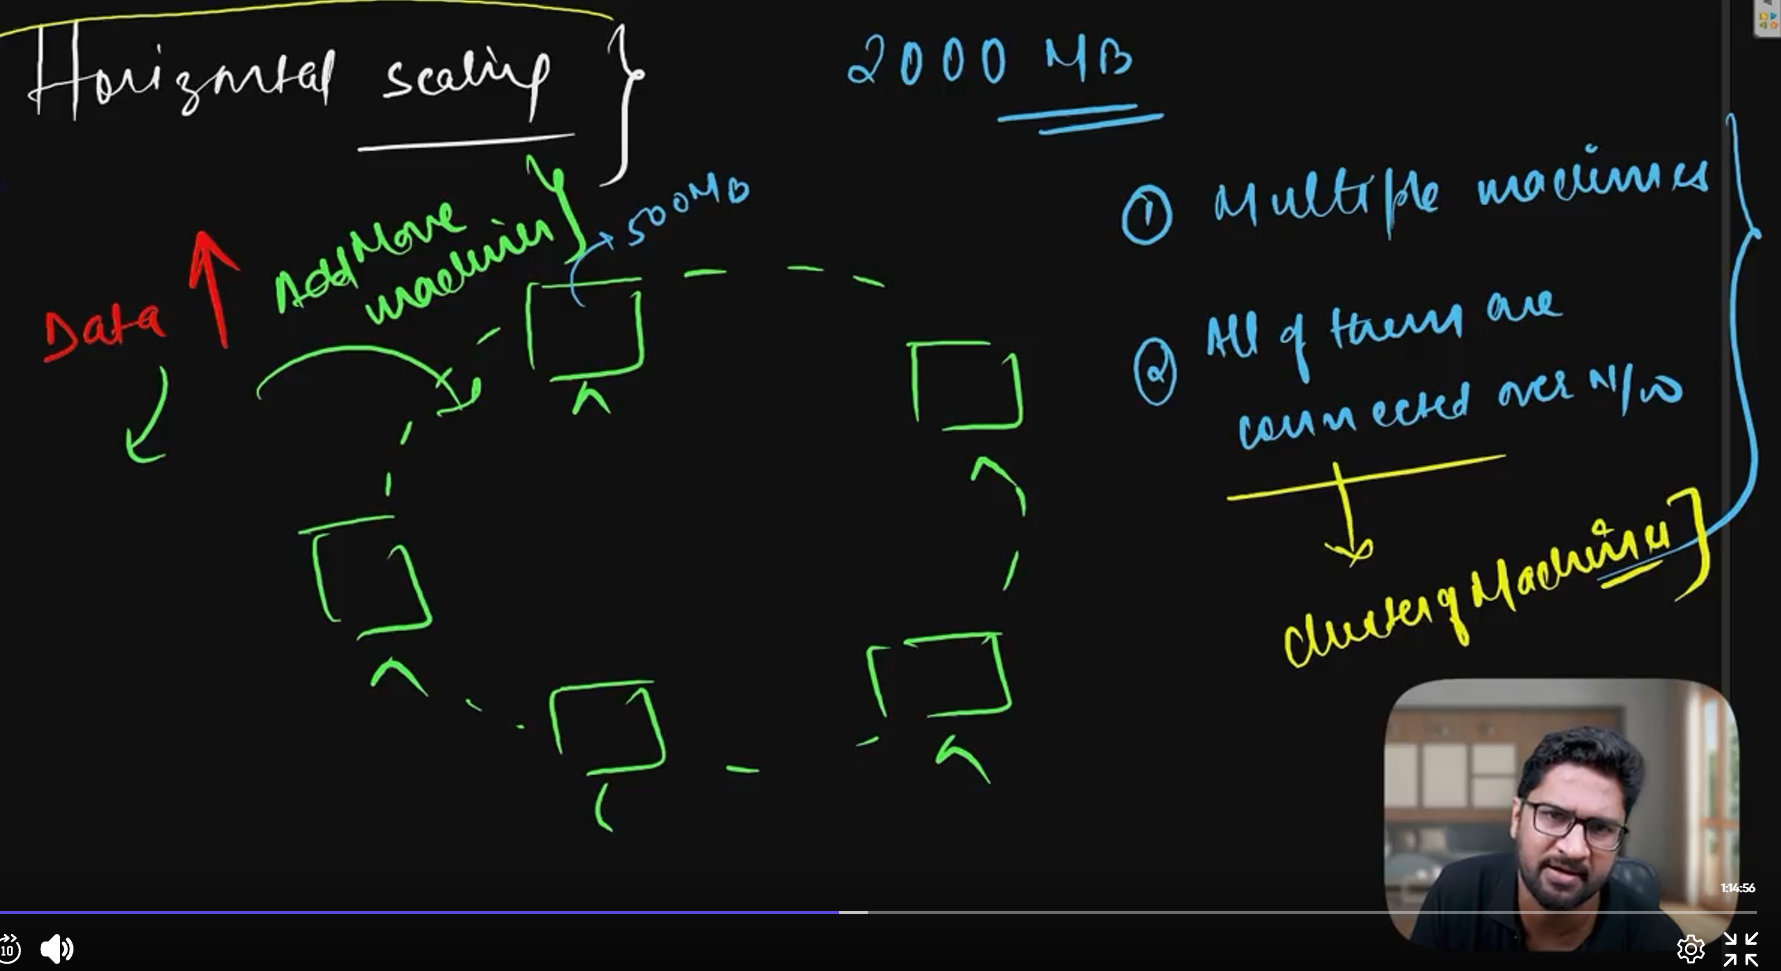 Horizontal scaling
2000 MB
Add More
machines
500MB
Data
① Multiple machines
② All of them are
connected over N/W
Cluster of Machines
1:14:56
10